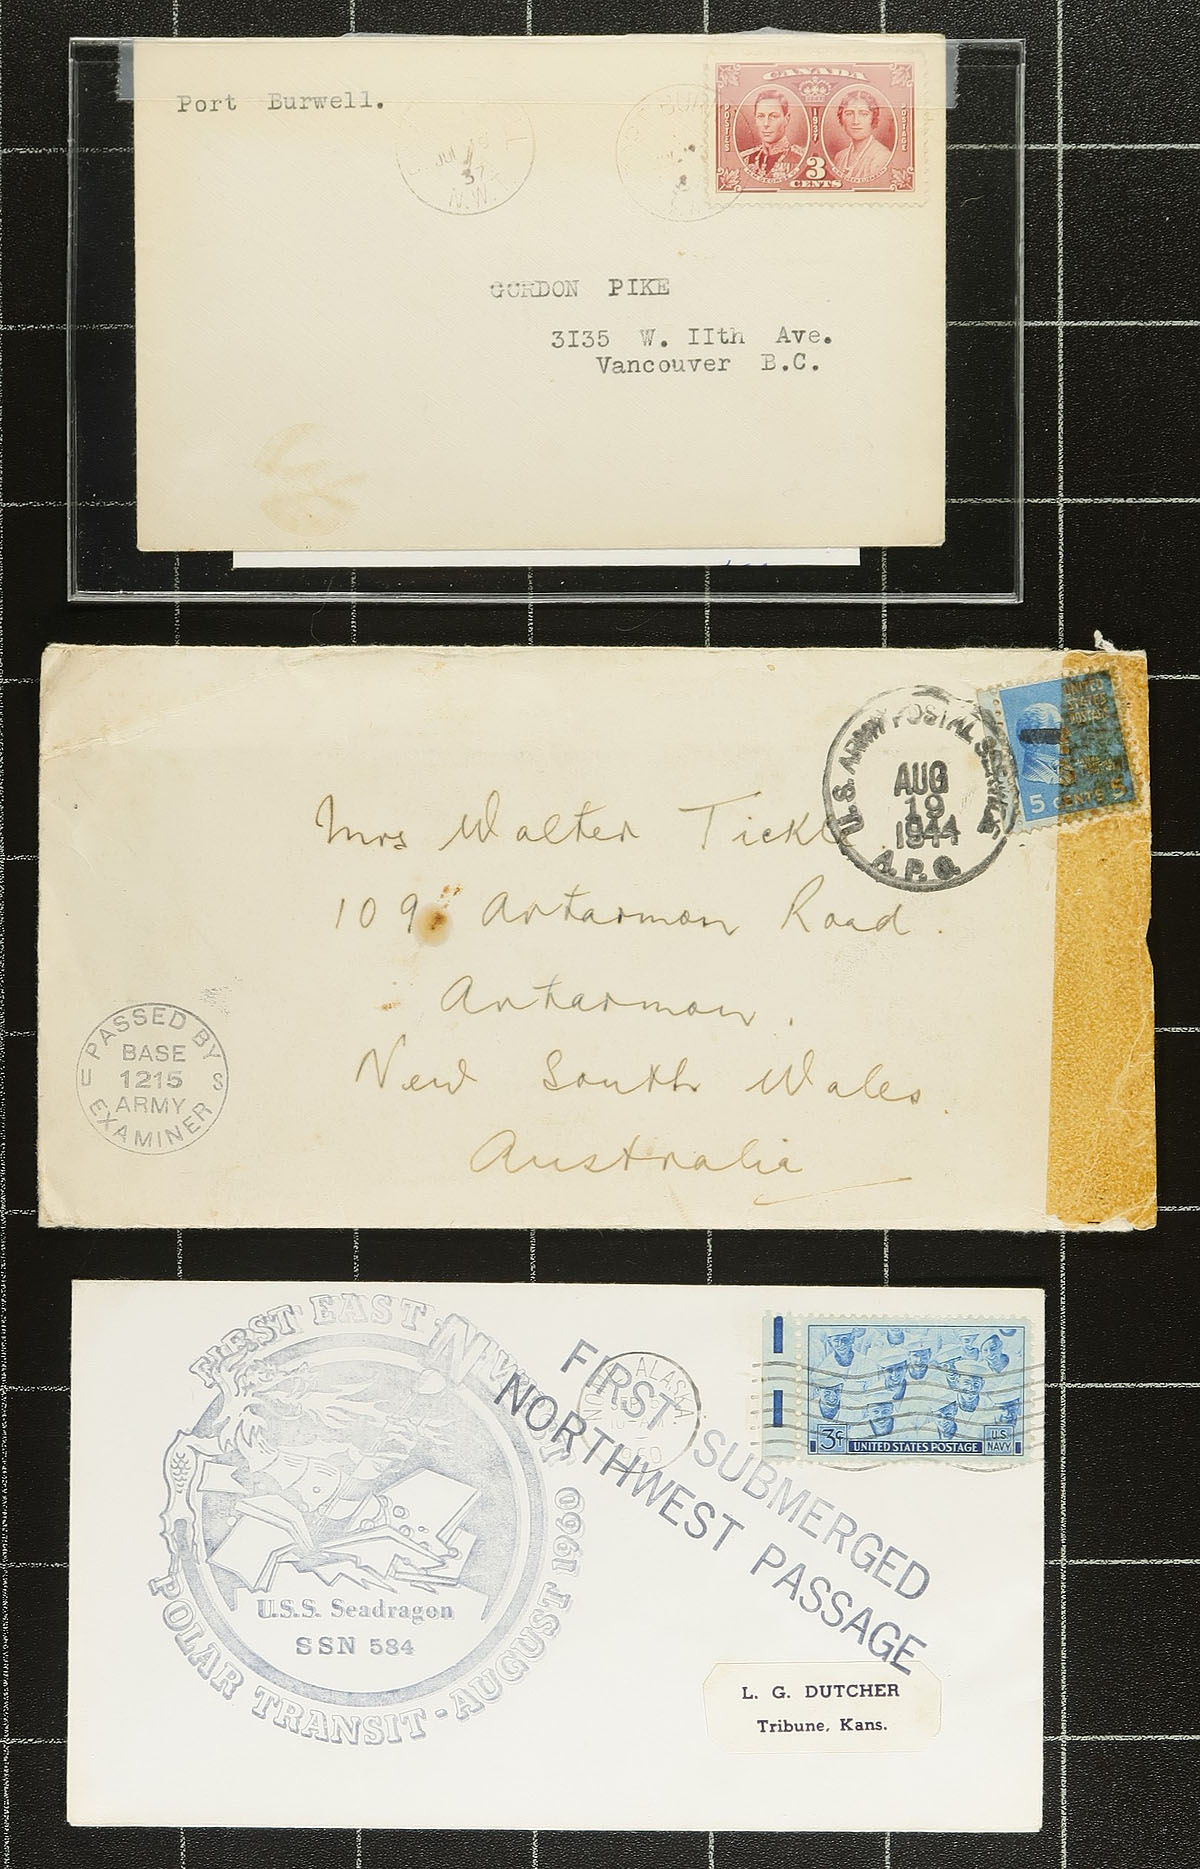 Port Burwell.
JUL
37
N.W.
CANADA
POSTES
1937
POSTAGE
3
CENTS
GORDON PIKE
3135 W. IIth Ave.
Vancouver B.C.
U.S. ARMY POSTAL SERVICE
AUG
19
1944
A.P.O.
UNITED
STATES
POSTAGE
5 CENTS 5
Mrs Walter Tickle
109 Artarmon Road.
Artarmon.
New South Wales.
Australia
PASSED BY
BASE
U 1215 S
ARMY
EXAMINER
FIRST EAST
U.S.S. Seadragon
SSN 584
POLAR TRANSIT - AUGUST 1960
FIRST SUBMERGED
NORTHWEST PASSAGE
ALASKA
3¢ UNITED STATES POSTAGE
U.S.
NAVY
L. G. DUTCHER
Tribune, Kans.